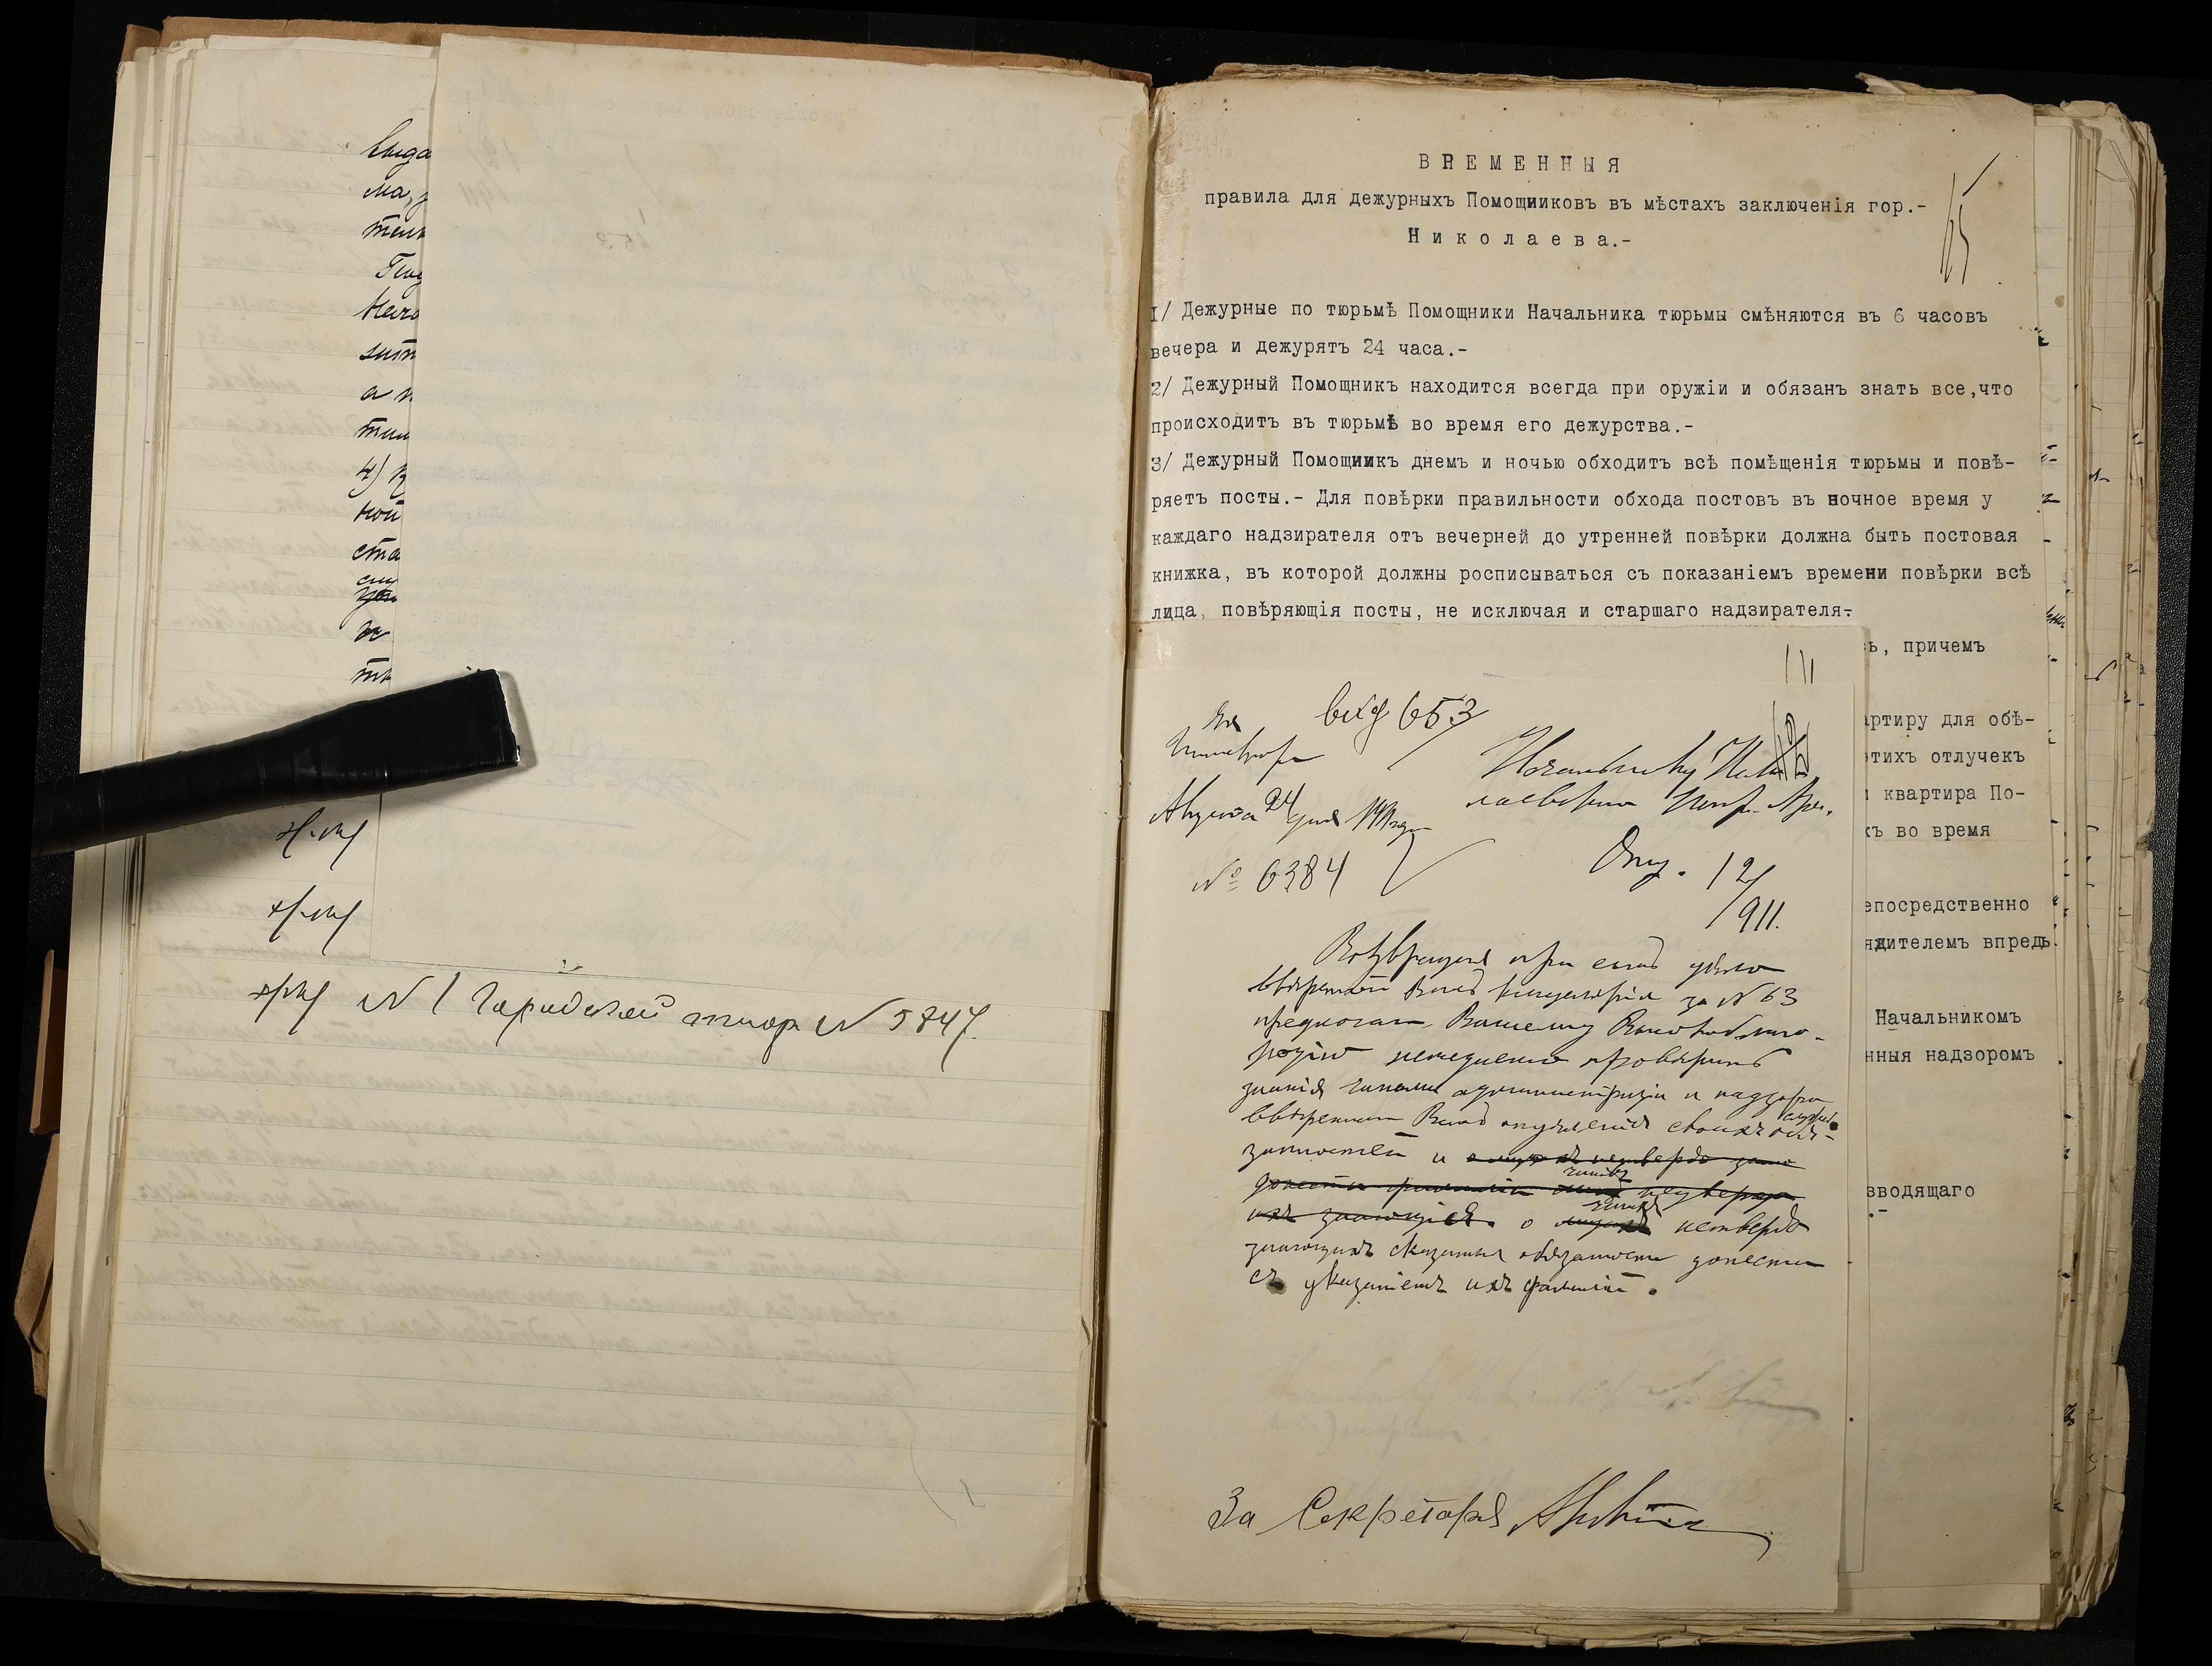 выда
ма,
тель
Госу
Нача
зит
а н
тии
4) К
ной
ста
не
№ 1 Городской № 5847.
ВРЕМЕННЫЯ
правила для дежурныхъ Помощниковъ въ мѣстахъ заключенія гор.-
Николаева.-
65
1/ Дежурные по тюрьмѣ Помощники Начальника тюрьмы смѣняются въ 6 часовъ
вечера и дежурятъ 24 часа.-
2/ Дежурный Помощникъ находится всегда при оружіи и обязанъ знать все,что
происходитъ въ тюрьмѣ во время его дежурства.-
3/ Дежурный Помощникъ днемъ и ночью обходитъ всѣ помѣщенія тюрьмы и повѣ-
ряетъ посты.- Для повѣрки правильности обхода постовъ въ ночное время у
каждаго надзирателя отъ вечерней до утренней повѣрки должна быть постовая
книжка, въ которой должны росписываться съ показаніемъ времени повѣрки всѣ
лица, повѣряющія посты, не исключая и старшаго надзирателя.-
ъ, причемъ
артиру для обѣ-
этихъ отлучекъ
и квартира По-
къ во время
епосредственно
ядителемъ впредь
Начальникомъ
нныя надзоромъ
зводящаго
вхд 653
Августа 24 дня 1911 года
Начальнику Нико-
лаевскаго
№ 6384
Отд. 12/
911.
Возвращая при семъ дѣло
ввѣренной Вамъ канцеляріи за № 63
предлагаю Вашему Высокоблаго-
родію немедленно провѣрить
знанія чинами администраціи и надзора
ввѣреннаго Вамъ отдѣленія своихъ служеб. обя-
занностей и
чиновъ
о нетвердо
знающихъ сказанныя обязанности донести
съ указаніемъ ихъ фамилій.
За Секретаря